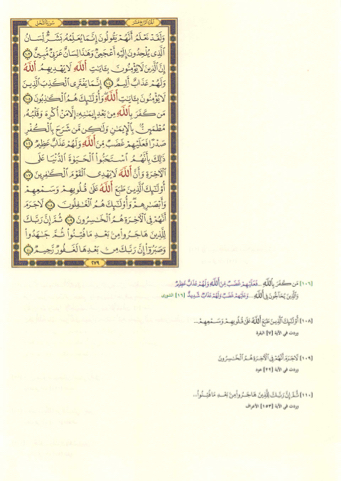 الجزء الرابع عشر سورة النحل
وَلَقَدْ نَعْلَمُ أَنَّهُمْ يَقُولُونَ إِنَّمَا يُعَلِّمُهُ بَشَرٌ لِّسَانُ
الَّذِي يُلْحِدُونَ إِلَيْهِ أَعْجَمِيٌّ وَهَٰذَا لِسَانٌ عَرَبِيٌّ مُّبِينٌ ١٠٣
إِنَّ الَّذِينَ لَا يُؤْمِنُونَ بِآيَاتِ اللَّهِ لَا يَهْدِيهِمُ اللَّهُ
وَلَهُمْ عَذَابٌ أَلِيمٌ ١٠٤ إِنَّمَا يَفْتَرِي الْكَذِبَ الَّذِينَ
لَا يُؤْمِنُونَ بِآيَاتِ اللَّهِ وَأُولَٰئِكَ هُمُ الْكَاذِبُونَ ١٠٥
مَن كَفَرَ بِاللَّهِ مِن بَعْدِ إِيمَانِهِ إِلَّا مَنْ أُكْرِهَ وَقَلْبُهُ
مُطْمَئِنٌّ بِالْإِيمَانِ وَلَٰكِن مَّن شَرَحَ بِالْكُفْرِ
صَدْرًا فَعَلَيْهِمْ غَضَبٌ مِّنَ اللَّهِ وَلَهُمْ عَذَابٌ عَظِيمٌ ١٠٦
ذَٰلِكَ بِأَنَّهُمُ اسْتَحَبُّوا الْحَيَاةَ الدُّنْيَا عَلَى
الْآخِرَةِ وَأَنَّ اللَّهَ لَا يَهْدِي الْقَوْمَ الْكَافِرِينَ ١٠٧
أُولَٰئِكَ الَّذِينَ طَبَعَ اللَّهُ عَلَىٰ قُلُوبِهِمْ وَسَمْعِهِمْ
وَأَبْصَارِهِمْ وَأُولَٰئِكَ هُمُ الْغَافِلُونَ ١٠٨ لَا جَرَمَ
أَنَّهُمْ فِي الْآخِرَةِ هُمُ الْخَاسِرُونَ ١٠٩ ثُمَّ إِنَّ رَبَّكَ
لِلَّذِينَ هَاجَرُوا مِن بَعْدِ مَا فُتِنُوا ثُمَّ جَاهَدُوا
وَصَبَرُوا إِنَّ رَبَّكَ مِن بَعْدِهَا لَغَفُورٌ رَّحِيمٌ ١١٠
٢٧٩
[١٠٦] مَن كَفَرَ بِاللَّهِ... فَعَلَيْهِمْ غَضَبٌ مِّنَ اللَّهِ وَلَهُمْ عَذَابٌ عَظِيمٌ
وَالَّذِينَ يُحَاجُّونَ فِي اللَّهِ... وَعَلَيْهِمْ غَضَبٌ وَلَهُمْ عَذَابٌ شَدِيدٌ [١٦] الشورى
[١٠٨] أُولَٰئِكَ الَّذِينَ طَبَعَ اللَّهُ عَلَىٰ قُلُوبِهِمْ وَسَمْعِهِمْ...
وردت في الآية [٧] البقرة
[١٠٩] لَا جَرَمَ أَنَّهُمْ فِي الْآخِرَةِ هُمُ الْخَاسِرُونَ
وردت في الآية [٢٢] هود
[١١٠] ثُمَّ إِنَّ رَبَّكَ لِلَّذِينَ هَاجَرُوا مِن بَعْدِ مَا فُتِنُوا...
وردت في الآية [١٥٣] الأعراف